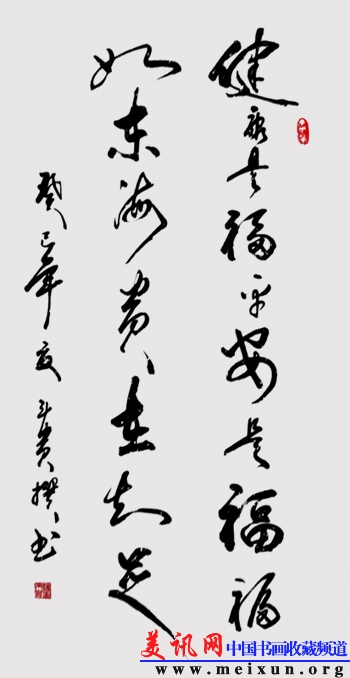 健康是福平安是福福
如东海贵在知足
癸巳年夏斗贵撰书
美讯网
中国书画收藏频道
www.meixun.org